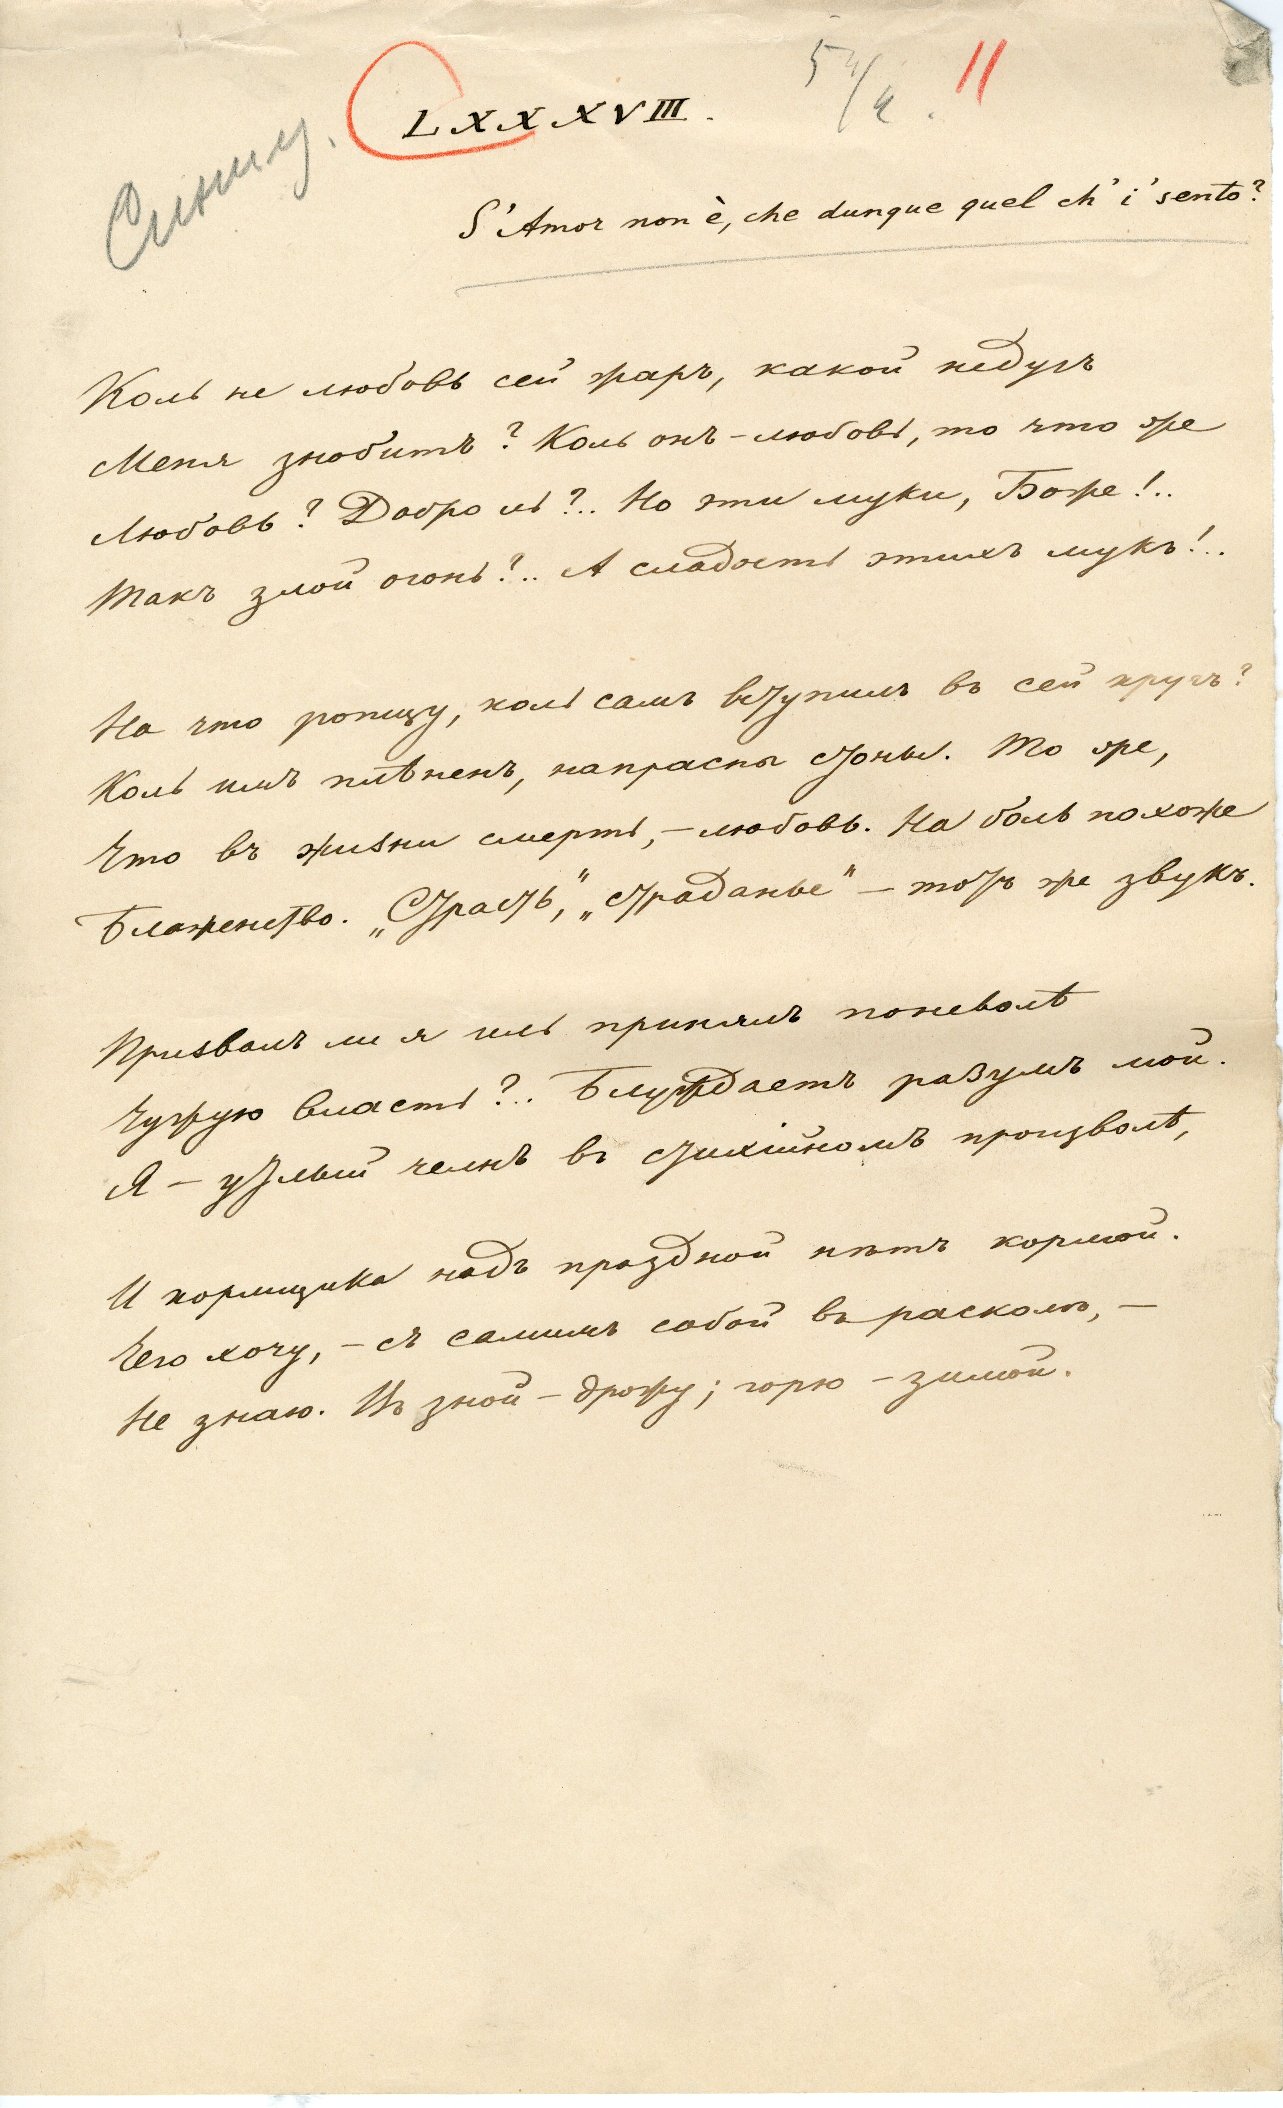 LXXXVIII.
11
S'Amor non è, che dunque quel ch'i' sento?
Коль не любовь сей жаръ, какой недугъ
Меня знобитъ? Коль онъ – любовь, то что же
Любовь? Добро ль?.. Но эти муки, Боже!..
Такъ злой огонь?.. А сладость этихъ мукъ!..
На что ропщу, коль самъ вступилъ въ сей кругъ?
Коль имъ плѣненъ, напрасны стоны. То же,
Что въ жизни смерть, – любовь. На боль похоже
Блаженство. „Страсть“, „страданье“ – тотъ же звукъ.
Призвалъ ли я иль принялъ поневолѣ
Чужую власть?.. Блуждаетъ разумъ мой.
Я – утлый челнъ въ стихійномъ произволѣ,
И кормщика надъ праздной нѣтъ кормой.
Чего хочу, – съ самимъ собой въ расколѣ, –
Не знаю. Въ зной – дрожу; горю – зимой.